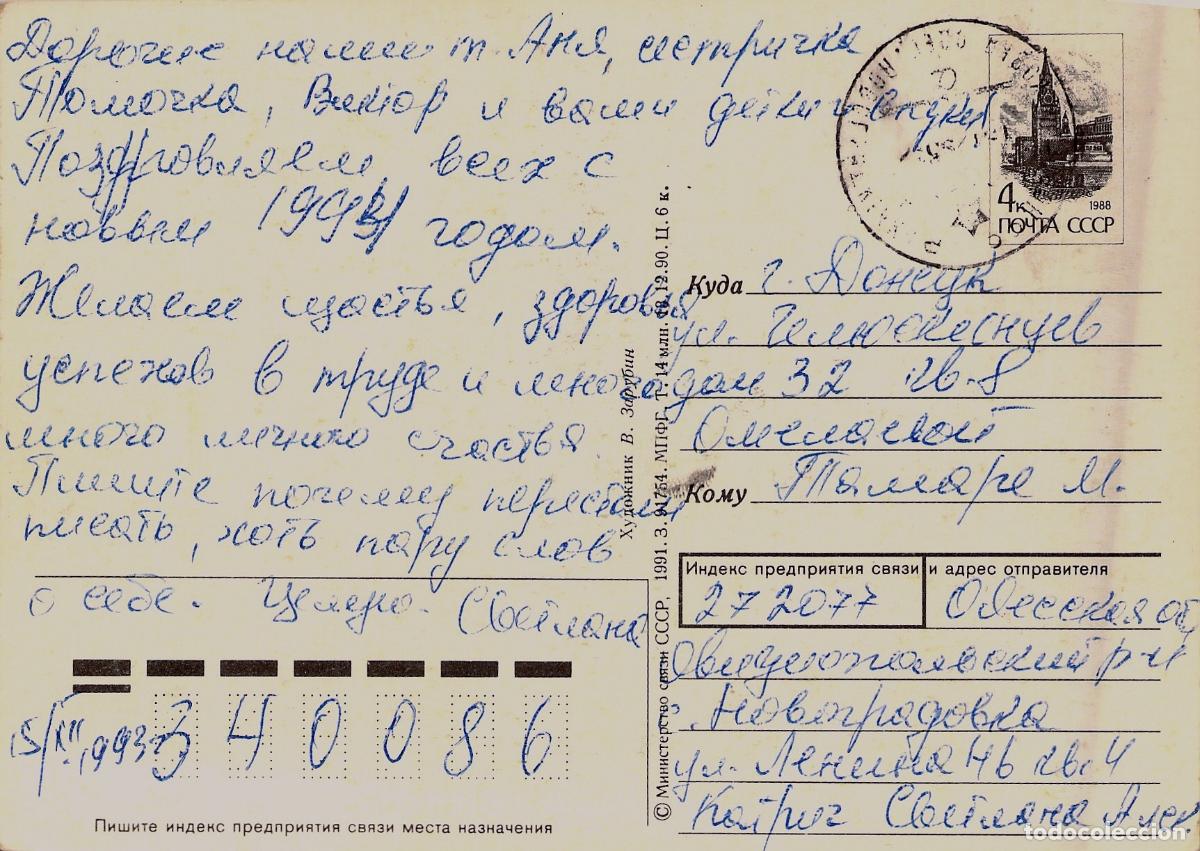 Дорогие наши т. Аня, сетричка
Томочка, Виктор и ваши детки и внуки
Поздровляем всех с
новым 1994 годом.
Желаем щастья, здоровья
успехов в труде и
много личного счастья.
Пишите почему перестали
писать, хоть пару слов
о себе. Целую. Светлана
15/XII 1993г
340086
Пишите индекс предприятия связи места назначения
Художник В. Зарубин
© Министерство связи СССР, 1991. З. 91764. МПФГ. Т. 14 млн. 18.12.90. Ц. 6 к.
4к 1988
ПОЧТА СССР
Куда г. Донецк
ул. Челюскинцев
дом 32 кв. 8
Омелаевой
Кому Тамаре М.
Индекс предприятия связи и адрес отправителя
272077 Одесская об
Овидиопольский р-н
с. Новоградовка
ул. Ленина 4b кв. 4
Катрич Светлана Алек
todocoleccion